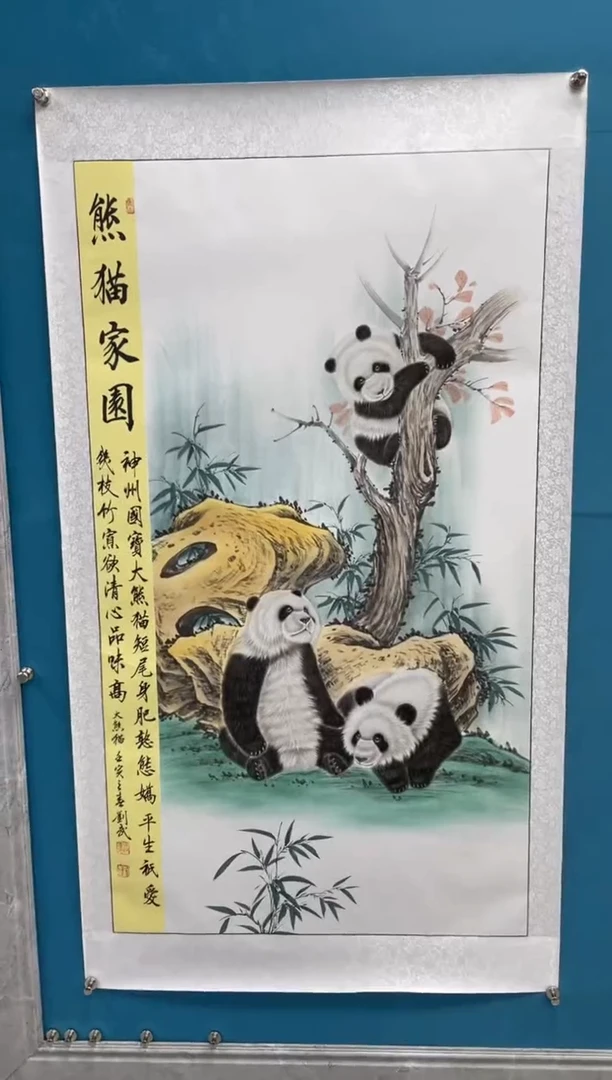 熊猫家園
神州國寶大熊猫短尾身肥憨態嬌平生祇愛
幾枝竹寡欲清心品味高
大熊猫壬寅之春劉武